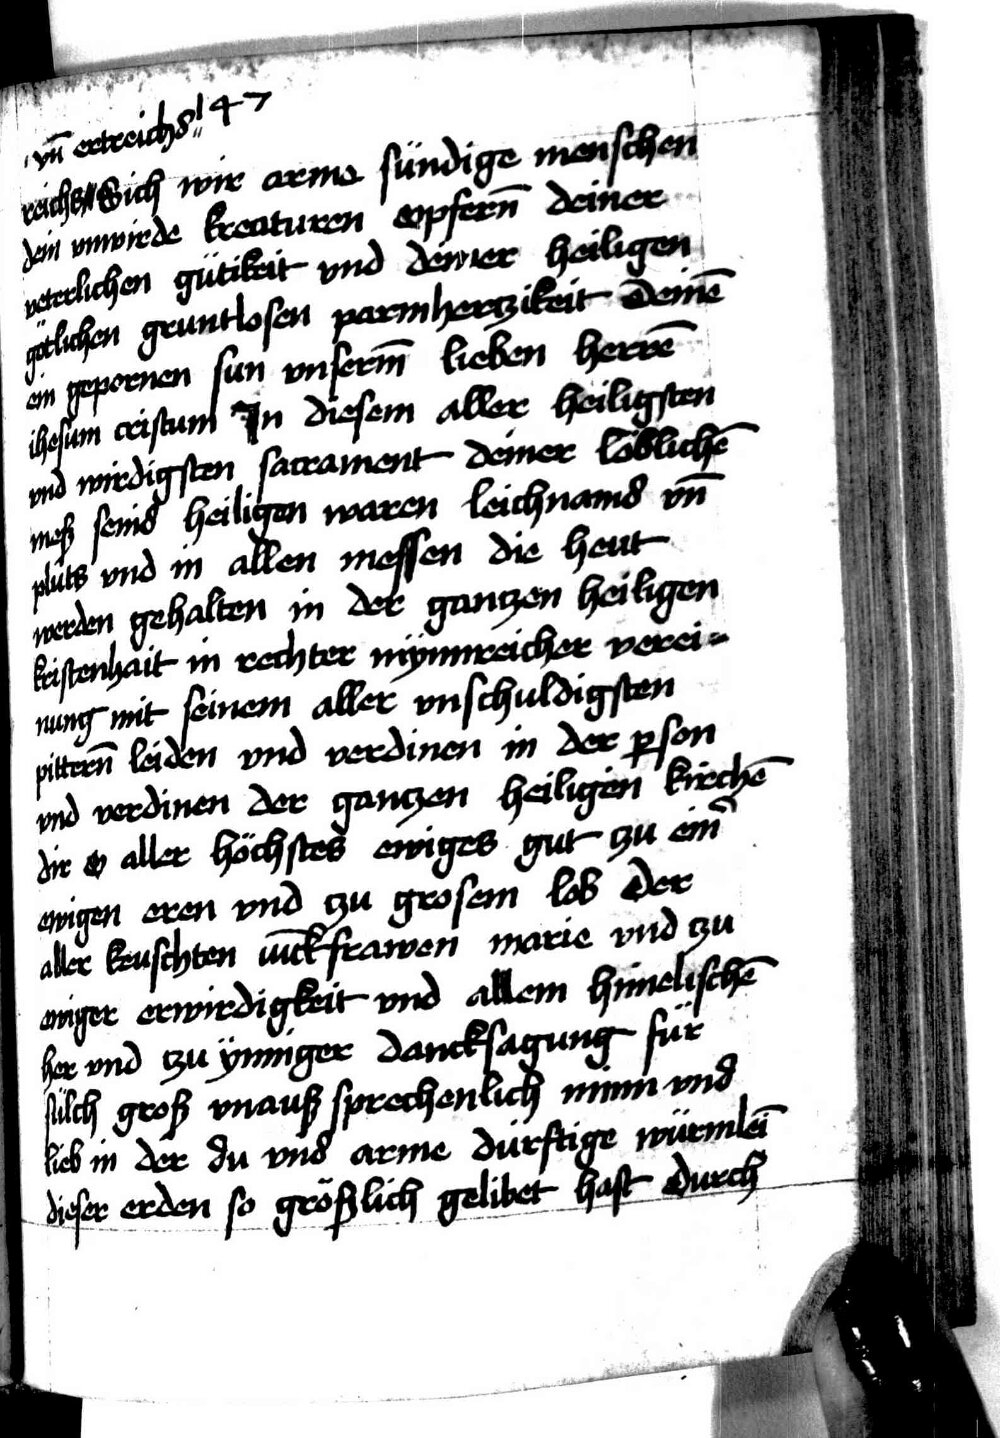 vn̄ ertreichs 47
reichs Sich wir arme sündige menschen
dein vnwirde kreaturen opfern̄ deiner
veterlichen gütikeit vnd deiner heiligen
götlichen gruntlosen parmhertzikeit deinē
ein gepornen sun vnserm̄ lieben herrē
ihesum cristum In diesem aller heiligsten
vnd wirdigsten sacrament deiner löblichē
meß seins heiligen waren leichnams vn̄
pluts vnd in allen messen die heut
werden gehalten in der gantzen heiligen
kristenhait in rechter mynnreicher verei-
nung mit seinem aller vnschuldigsten
pittern̄ leiden vnd verdinen in der ꝑson
vnd verdinen der gantzen heiligen kirchē
dir o aller höchstes ewiges gut tzu eim̄
ewigen eren vnd tzu grosem lob der
aller keuschten iūckfrawen marie vnd tzu
ewiger erwirdigkeit vnd allem himelischē
her vnd tzu ynniger dancksagung für
sülch groß vnauß sprechenlich minn vnd
lieb in der du vns arme dürftige würmleī
dieser erden so größlich gelibet hast durch